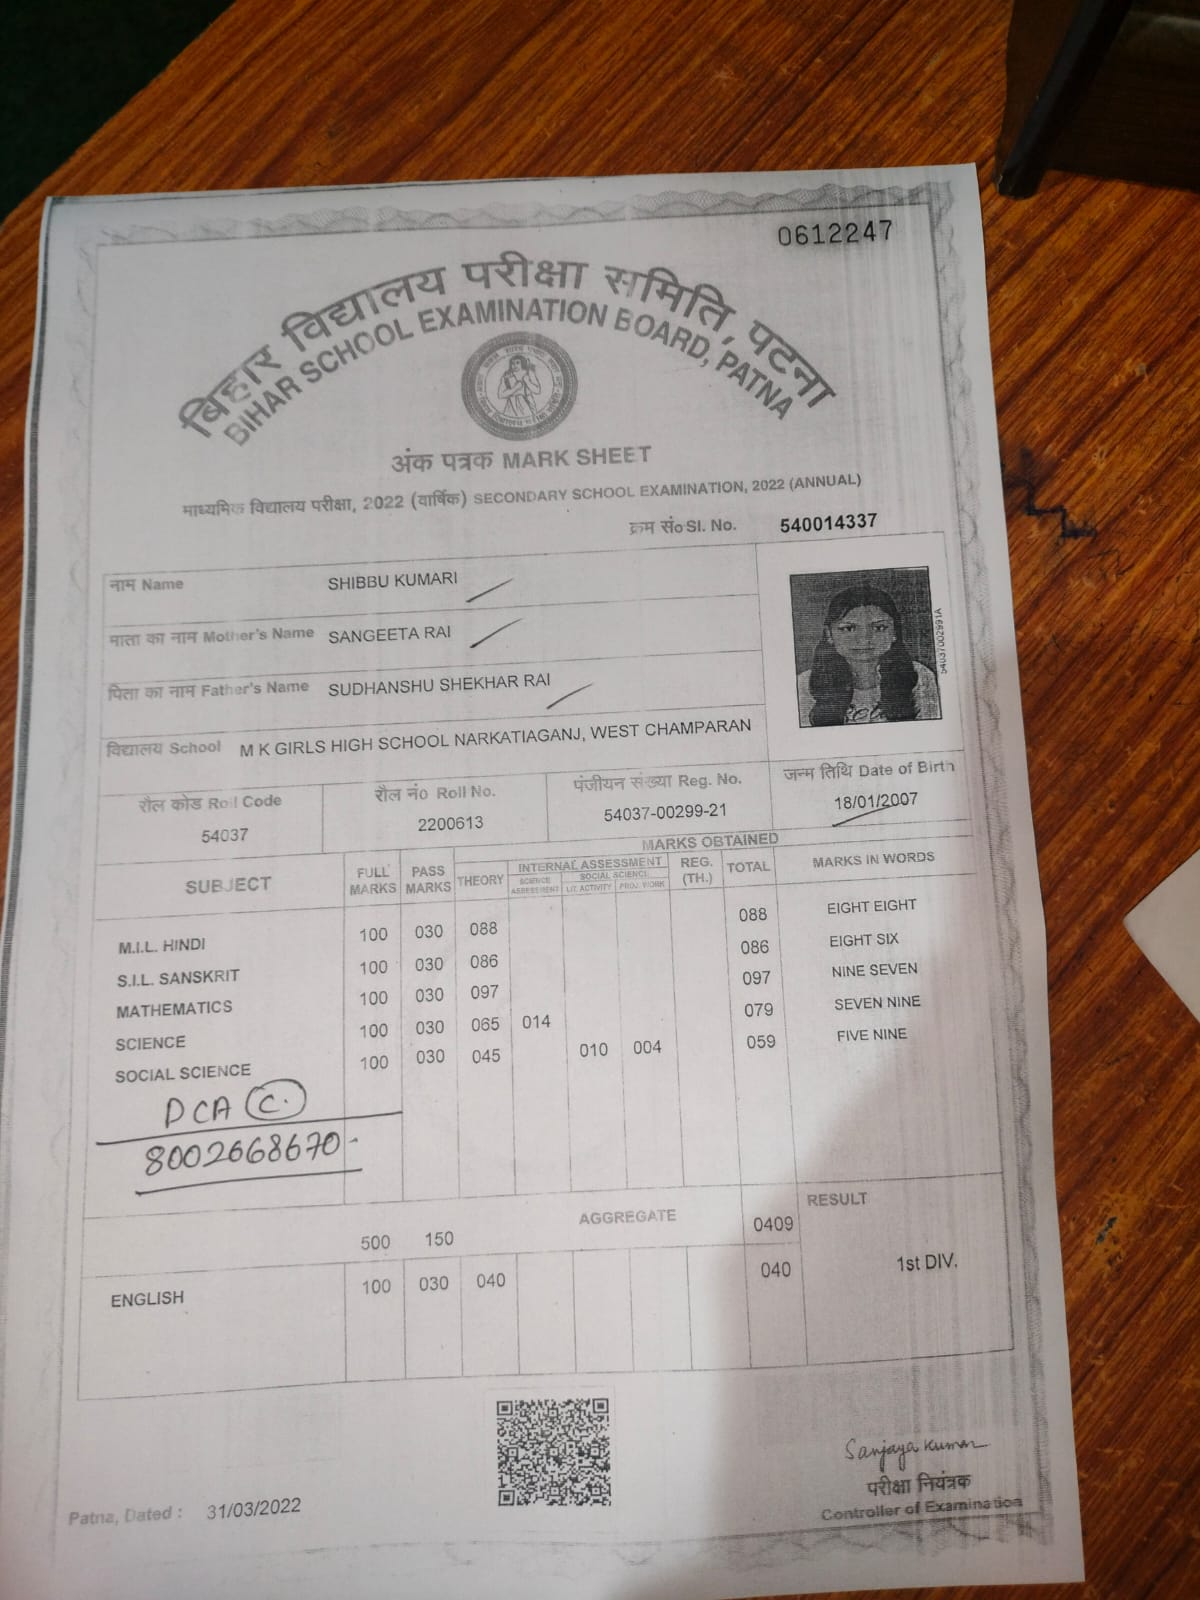 0612247
बिहार विद्यालय परीक्षा समिति, पटना
BIHAR SCHOOL EXAMINATION BOARD, PATNA
अंक पत्रक MARK SHEET
माध्यमिक विद्यालय परीक्षा, 2022 (वार्षिक) SECONDARY SCHOOL EXAMINATION, 2022 (ANNUAL)
क्रम सं० Sl. No. 540014337
नाम Name SHIBBU KUMARI
माता का नाम Mother's Name SANGEETA RAI
पिता का नाम Father's Name SUDHANSHU SHEKHAR RAI
विद्यालय School M K GIRLS HIGH SCHOOL NARKATIAGANJ, WEST CHAMPARAN
54037002991A
रौल कोड Roll Code रौल नं० Roll No. पंजीयन संख्या Reg. No. जन्म तिथि Date of Birth
54037 2200613 54037-00299-21 18/01/2007
MARKS OBTAINED
SUBJECT FULL MARKS PASS MARKS THEORY INTERNAL ASSESSMENT REG. (TH.) TOTAL MARKS IN WORDS
SCIENCE ASSESSMENT SOCIAL SCIENCE LIT. ACTIVITY PROJ. WORK
M.I.L. HINDI 100 030 088 088 EIGHT EIGHT
S.I.L. SANSKRIT 100 030 086 086 EIGHT SIX
MATHEMATICS 100 030 097 097 NINE SEVEN
SCIENCE 100 030 065 014 079 SEVEN NINE
SOCIAL SCIENCE 100 030 045 010 004 059 FIVE NINE
DCA C.
8002668670
AGGREGATE RESULT
500 150 0409
ENGLISH 100 030 040 040 1st DIV.
Sanjaya Kumar
परीक्षा नियंत्रक
Controller of Examination
Patna, Dated : 31/03/2022